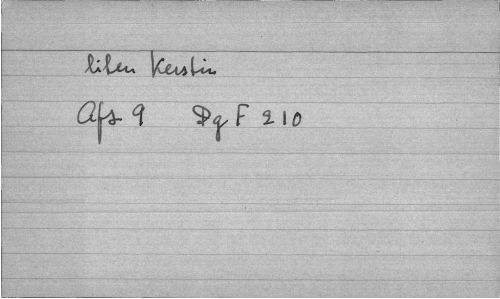 liten Kerstin
Afs 9 DgF 210